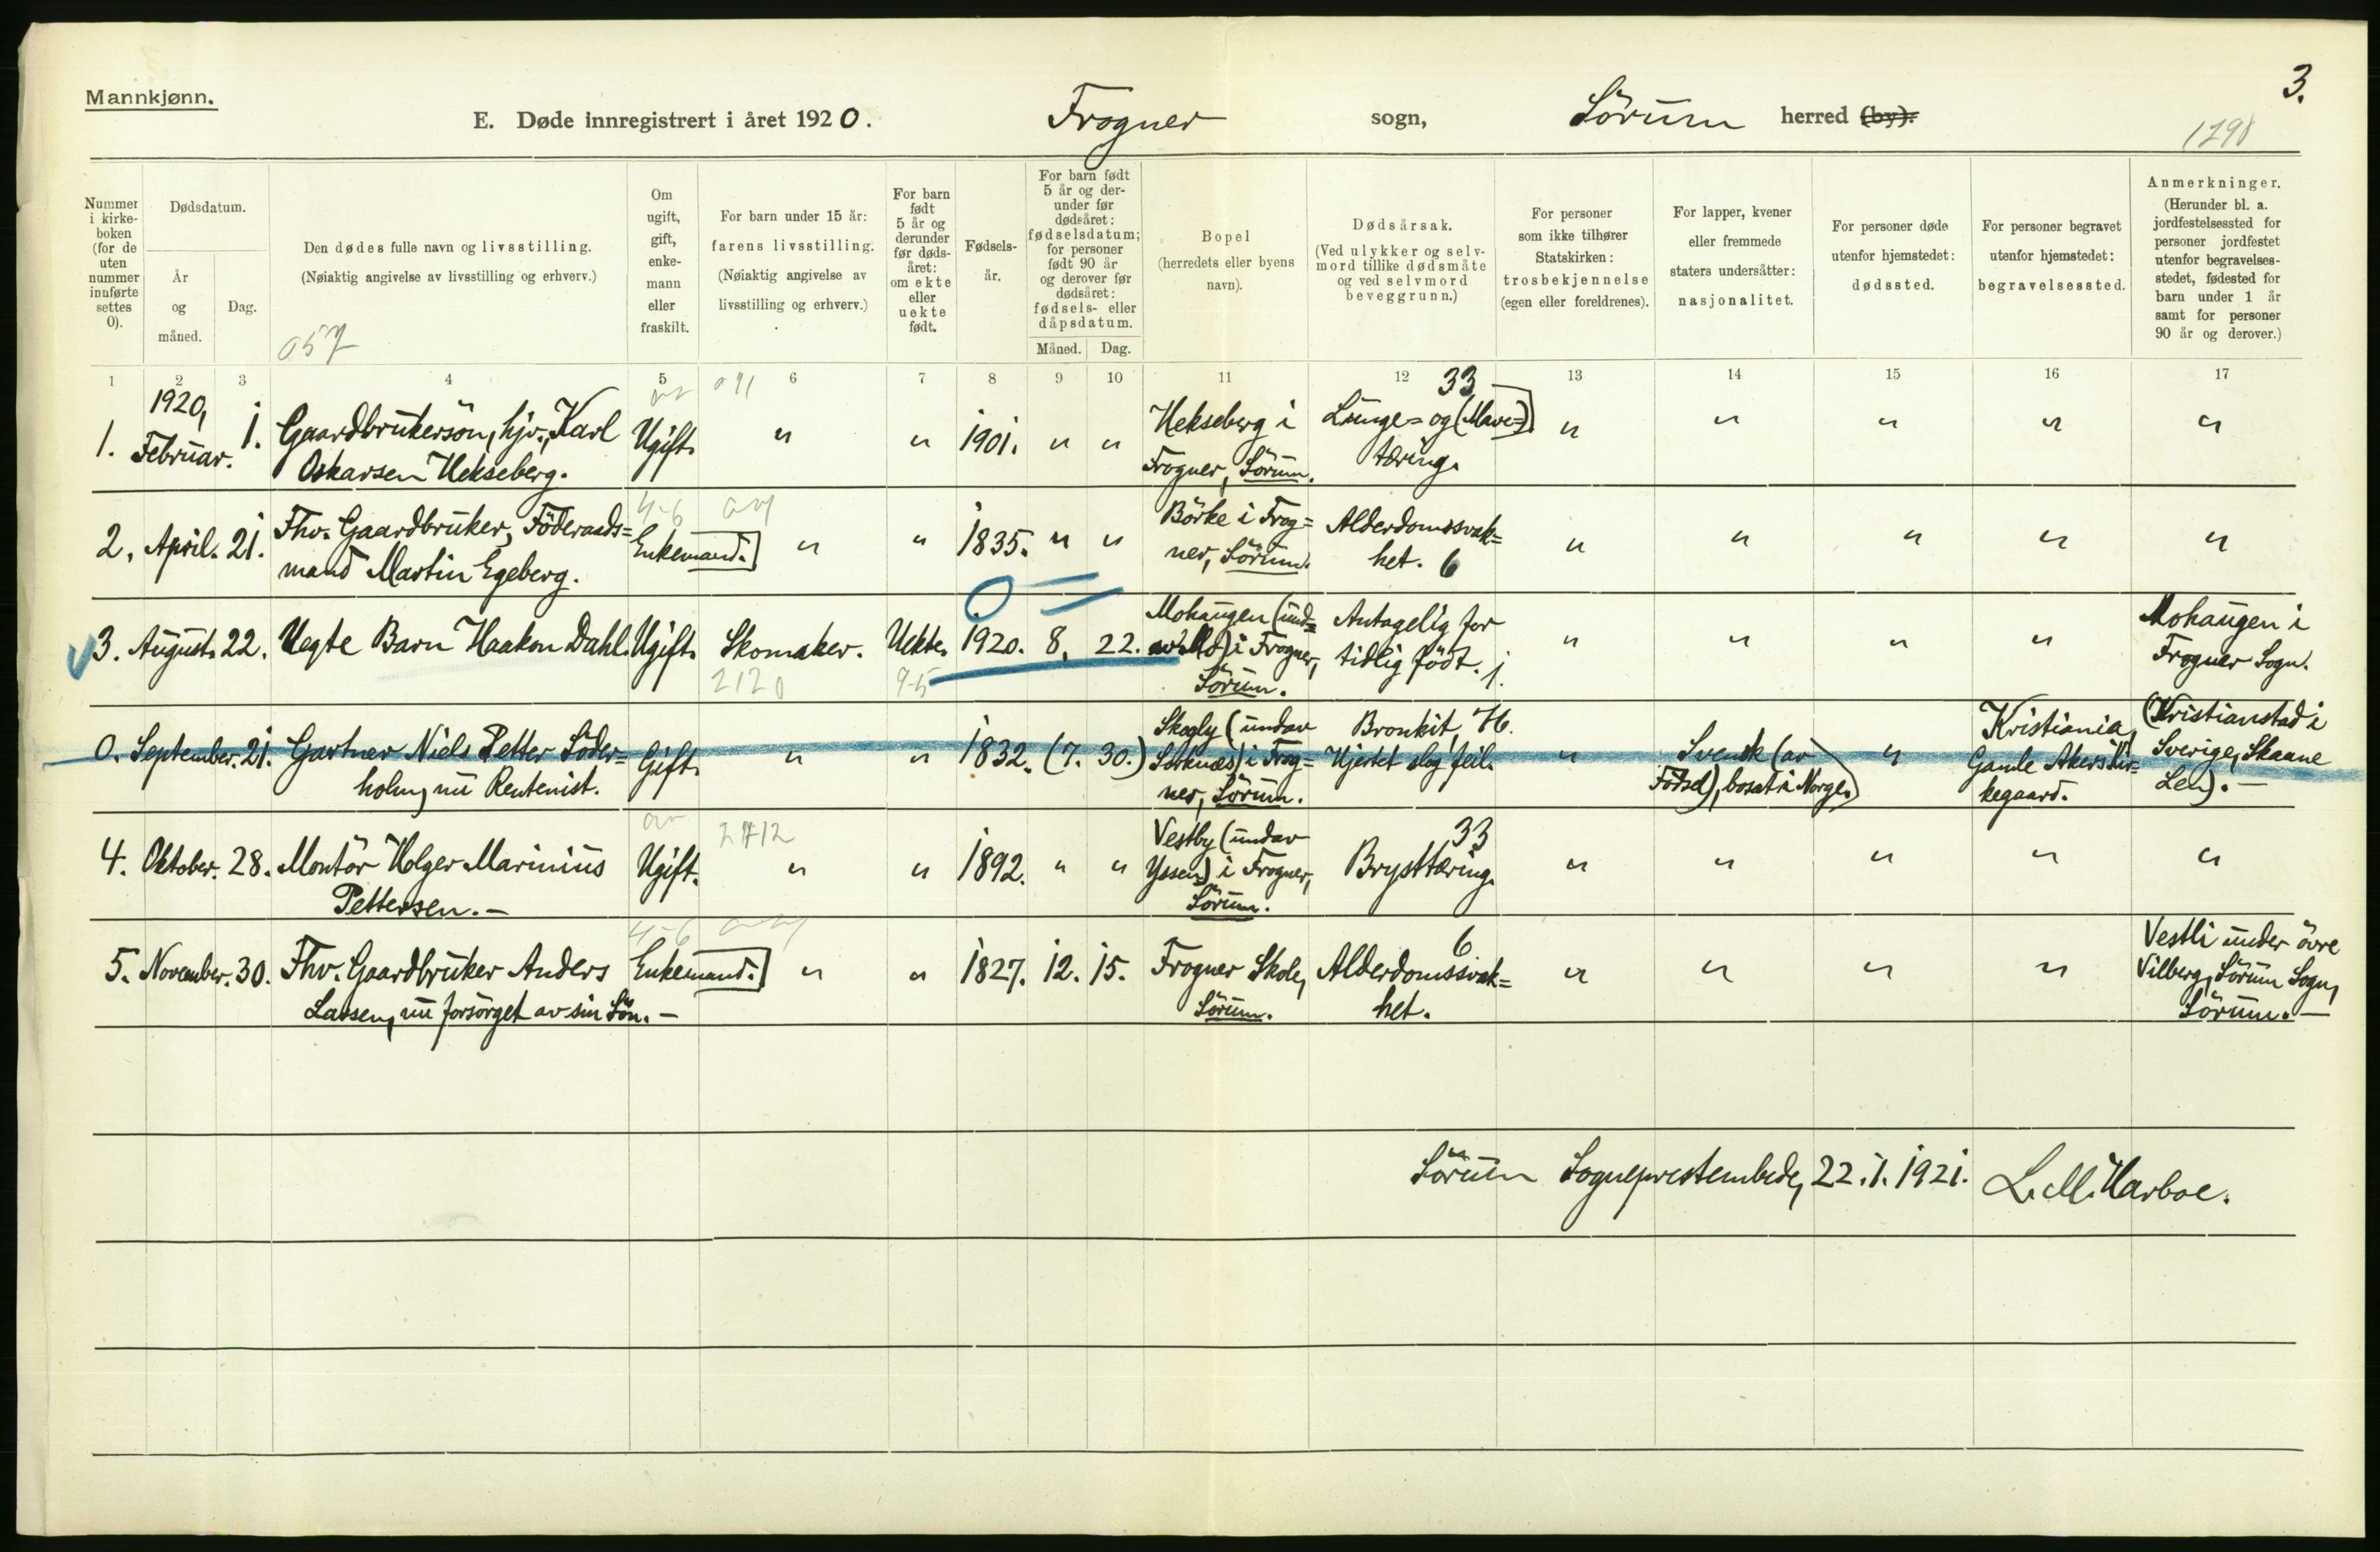 Mannkjønn.
3.
E. Døde innregistrert i året 1920. Frogner sogn, Sörum herred (by).
1298
Nummer i kirkeboken (for de uten nummer innførte settes 0).
Dødsdatum.
År og måned.
Dag.
Den dødes fulle navn og livsstilling.
(Nøiaktig angivelse av livsstilling og erhverv.)
057
Om ugift, gift, enkemann eller fraskilt.
For barn under 15 år:
farens livsstilling.
(Nøiaktig angivelse av livsstilling og erhverv.)
For barn født 5 år og derunder før dødsåret: om ekte eller uekte født.
Fødselsår.
For barn født 5 år og derunder før dødsåret: fødselsdatum; for personer født 90 år og derover før dødsåret: fødsels- eller dåpsdatum.
Måned. Dag.
Bopel
(herredets eller byens navn).
Dødsårsak.
(Ved ulykker og selvmord tillike dødsmåte og ved selvmord beveggrunn.)
For personer som ikke tilhører Statskirken: trosbekjennelse (egen eller foreldrenes).
For lapper, kvener eller fremmede staters undersåtter: nasjonalitet.
For personer døde utenfor hjemstedet: dødssted.
For personer begravet utenfor hjemstedet: begravelsessted.
Anmerkninger.
(Herunder bl. a. jordfestelsessted for personer jordfestet utenfor begravelsesstedet, fødested for barn under 1 år samt for personer 90 år og derover.)
1 2 3 4 5 6 7 8 9 10 11 12 13 14 15 16 17
1920, 33
1. Februar. 1. Gaardbrukersön, hjv., Karl Ugift. " " 1901. " " Hekseberg i Lunge= og (Mave=) " " " " "
Oskarsen Hekseberg. Frogner, Sörum. tæring.
2. April. 21. Fhv. Gaardbruker, Föderaads= Enkemand. " " 1835. " " Börke i Frog= Alderdomssvak= " " " " "
mand Martin Egeberg. ner, Sörum. het. 6
3. August. 22. Uegte Barn Haakon Dahl. Ugift. Skomaker. Uekte. 1920. 8. 22. Mohaugen (und= i Frogner, Antagelig for " " " " Mohaugen i
2120 95 Sörum. tidlig födt. 1. Frogner Sogn.
0. September. 21. Gartner Niels Petter Söder= Gift. " " 1832. (7. 30.) Skogly (undav Bronkit, H. " Svensk (av " Kristiania, (Kristianstad i
holm, nu Rentenist. Sörknæs) i Frog= Hjertet slog feil. Födsel), bosat i Norge. Gamle Akers Kir= Sverige, Skaane
ner, Sörum. kegaard. Len). —
2712 33
4. Oktober. 28. Montör Holger Marinius Ugift. " " 1892. " " Vestby (undav Brysttæring. " " " " "
Pettersen. — Yssen) i Frogner,
Sörum.
5. November. 30. Fhv. Gaardbruker Anders Enkemand. " " 1827. 12. 15. Frogner Skole, Alderdomssvak= 6 " " " " Vestli under övre
Larsen, nu forsörget av sin Sön. — Sörum. het. Vilberg, Sörum Sogn,
Sörum. —
Sörum Sogneprestembede, 22.1.1921. L. M. Harboe.